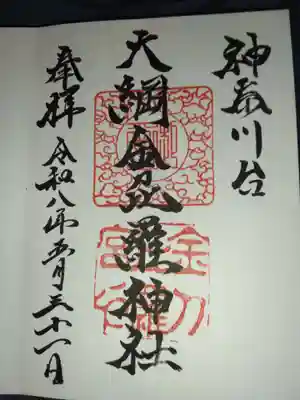 神奈川台
大綱金刀比羅神社
奉拝 令和八年五月三十一日